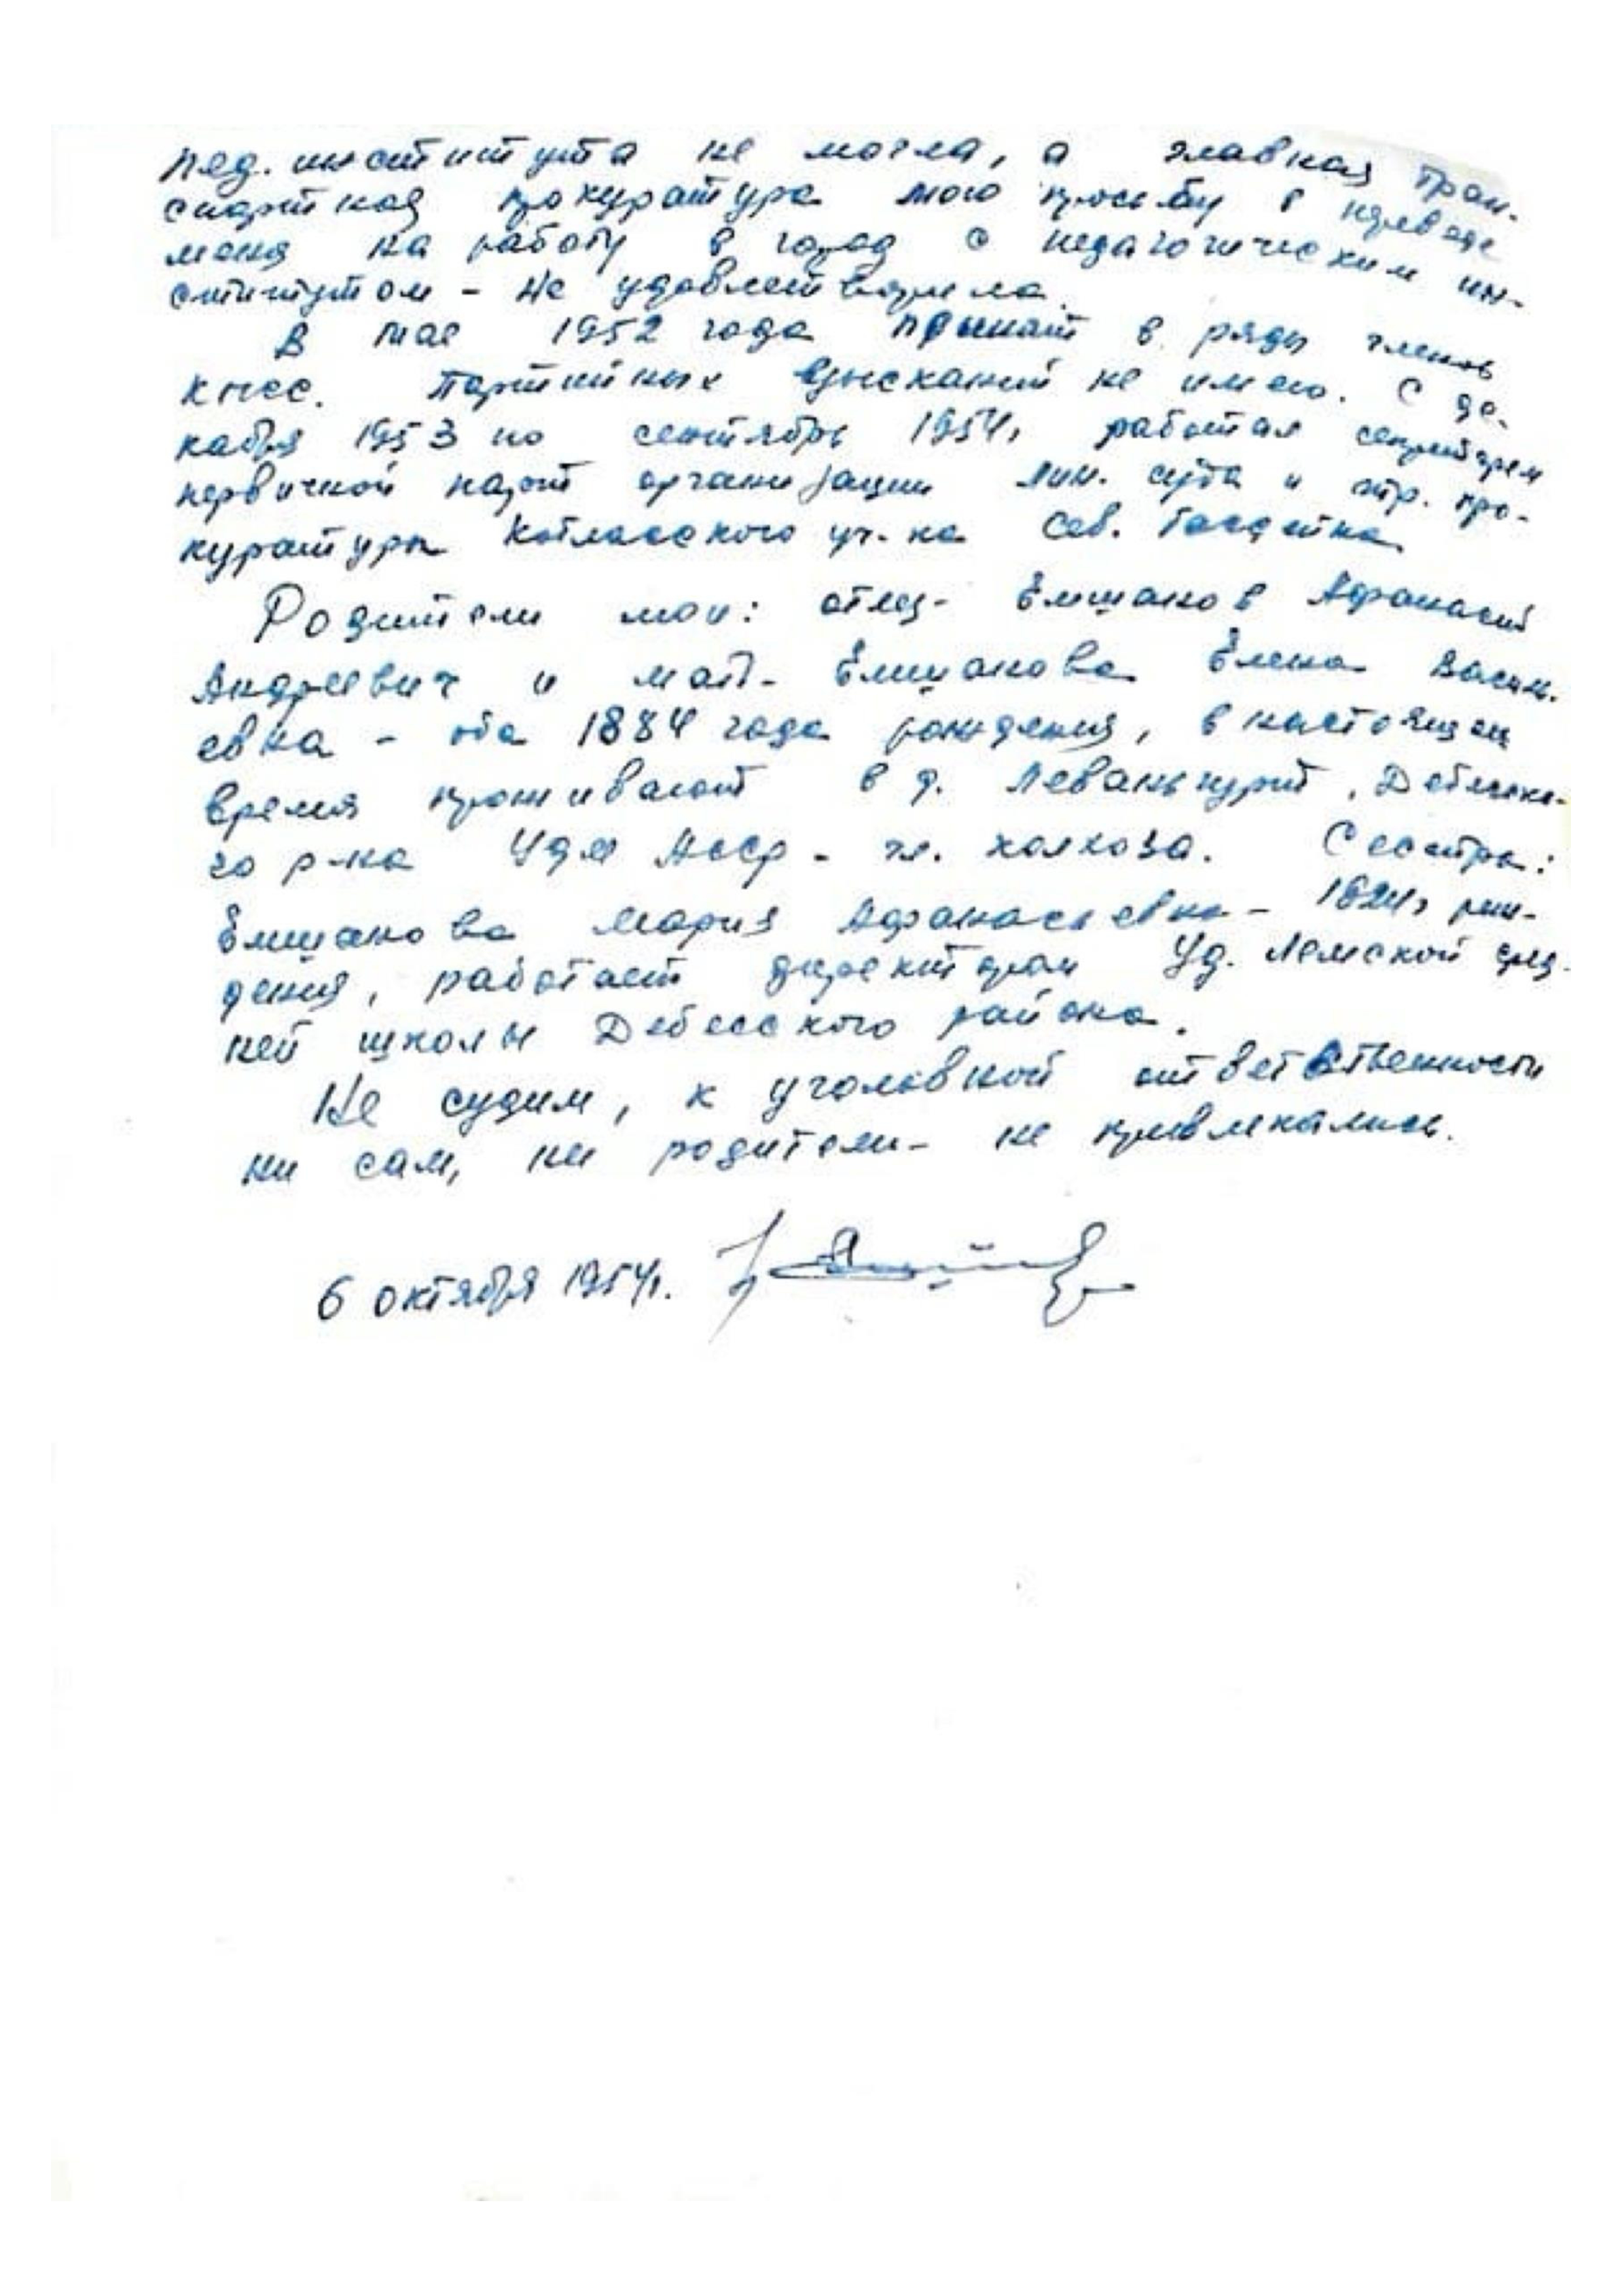 пед. института не могла, а главная тран-
спортная прокуратура мою просьбу о переводе
меня на работу в город с педагогическим ин-
ститутом - не удовлетворила.
В мае 1952 года принят в ряды членов
КПСС. Партийных взысканий не имею. С де-
кабря 1953 по сентябрь 1954г. работал секретарем
первичной парт организации лин. суда и тр. про-
куратуры Котласского уч-ка Сев.
Родители мои: отец - Емшанов Афанасий
Андреевич и мать - Емшанова Елена Василь-
евна - оба 1884 года рождения, в настоящее
время проживают в д. Леванькурт, Дебесско-
го р-на Удм АССР - чл. колхоза. Сестра:
Емшанова Мария Афанасьевна - 1924г рож-
дения, работает директором Уд. Лемской сред-
ней школы Дебесского района.
Не судим, к уголовной ответственности
ни сам, ни родители - не привлекались.
6 октября 1954г.